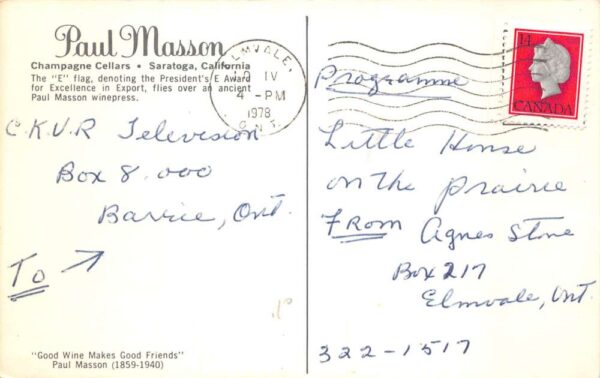 Paul Masson
Champagne Cellars • Saratoga, California
The "E" flag, denoting the President's E Award
for Excellence in Export, flies over an ancient
Paul Masson winepress.
C.K.V.R Television
Box 8.000
Barrie, Ont.
To
"Good Wine Makes Good Friends"
Paul Masson (1859-1940)
ELMVALE,
IV
4 -PM
1978
ONT.
14
CANADA
Programme
Little House
on the prairie
From Agnes Stone
Box 217
Elmvale, Ont.
322-1517